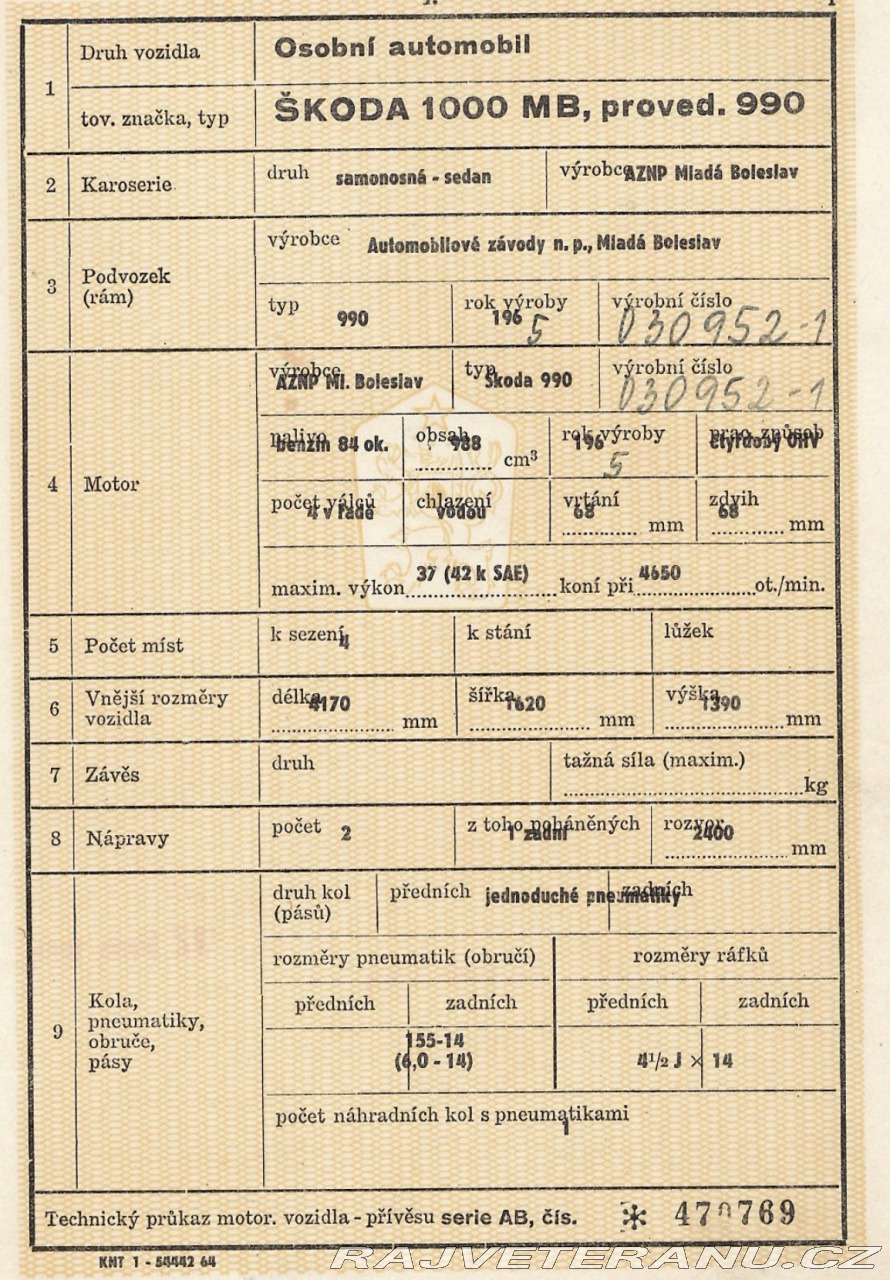 1 Druh vozidla Osobní automobil
tov. značka, typ ŠKODA 1000 MB, proved. 990
2 Karoserie druh samonosná - sedan výrobce AZNP Mladá Boleslav
3 Podvozek (rám) výrobce Automobilové závody n. p., Mladá Boleslav
typ 990 rok výroby 1965 výrobní číslo 030952-1
4 Motor výrobce AZNP Ml. Boleslav typ Škoda 990 výrobní číslo 030952-1
palivo benzin 84 ok. obsah 988 cm³ rok výroby 1965 prac. způsob čtyřdobý OHV
počet válců 4 v řadě chlazení vodou vrtání 68 mm zdvih 68 mm
maxim. výkon 37 (42 k SAE) koní při 4650 ot./min.
5 Počet míst k sezení 4 k stání lůžek
6 Vnější rozměry vozidla délka 4170 mm šířka 1620 mm výška 1390 mm
7 Závěs druh tažná síla (maxim.) kg
8 Nápravy počet 2 z toho poháněných 1 zadní rozvor 2400 mm
9 Kola, pneumatiky, obruče, pásy druh kol (pásů) předních jednoduché pneumatiky zadních
rozměry pneumatik (obručí) rozměry ráfků
předních zadních předních zadních
155-14
(6,0 - 14) 4½ J × 14
počet náhradních kol s pneumatikami
1
Technický průkaz motor. vozidla - přívěsu serie AB, čís. * 470769
KNT 1 - 54442 64
RAJVETERANU.CZ